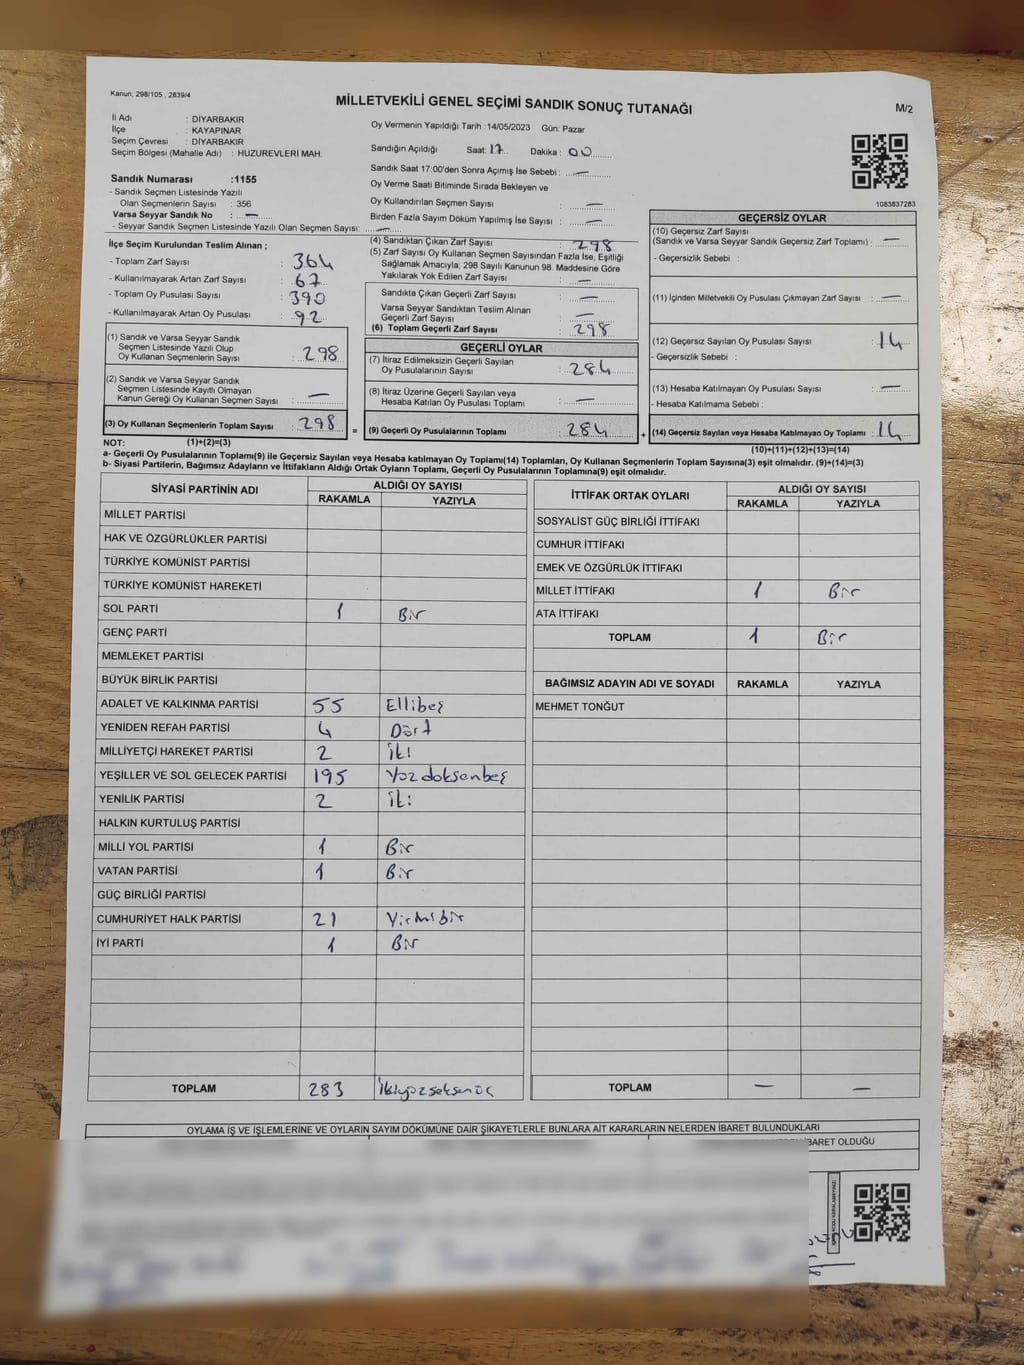 Kanun; 298/105 , 2839/4
MİLLETVEKİLİ GENEL SEÇİMİ SANDIK SONUÇ TUTANAĞI
M/2
İl Adı : DİYARBAKIR
İlçe : KAYAPINAR
Seçim Çevresi : DİYARBAKIR
Seçim Bölgesi (Mahalle Adı) : HUZUREVLERİ MAH.
Oy Vermenin Yapıldığı Tarih :14/05/2023 Gün: Pazar
Sandığın Açıldığı Saat: 17 Dakika : 00
Sandık Saat 17:00'den Sonra Açımış İse Sebebi : —
Oy Verme Saati Bitiminde Sırada Bekleyen ve
Oy Kullandırılan Seçmen Sayısı : —
Birden Fazla Sayım Döküm Yapılmış İse Sayısı : —
1083837283
Sandık Numarası :1155
- Sandık Seçmen Listesinde Yazılı
Olan Seçmenlerin Sayısı : 356
Varsa Seyyar Sandık No : —
- Seyyar Sandık Seçmen Listesinde Yazılı Olan Seçmen Sayısı: —
İlçe Seçim Kurulundan Teslim Alınan ;
- Toplam Zarf Sayısı : 364
- Kullanılmayarak Artan Zarf Sayısı : 67
- Toplam Oy Pusulası Sayısı : 390
- Kullanılmayarak Artan Oy Pusulası : 92
(1) Sandık ve Varsa Seyyar Sandık
Seçmen Listesinde Yazılı Olup
Oy Kullanan Seçmenlerin Sayısı : 298
(2) Sandık ve Varsa Seyyar Sandık
Seçmen Listesinde Kayıtlı Olmayan
Kanun Gereği Oy Kullanan Seçmen Sayısı : —
(3) Oy Kullanan Seçmenlerin Toplam Sayısı : 298
(4) Sandıktan Çıkan Zarf Sayısı : 298
(5) Zarf Sayısı Oy Kullanan Seçmen Sayısından Fazla İse, Eşitliği
Sağlamak Amacıyla; 298 Sayılı Kanunun 98. Maddesine Göre
Yakılarak Yok Edilen Zarf Sayısı : —
Sandıkta Çıkan Geçerli Zarf Sayısı : —
Varsa Seyyar Sandıktan Teslim Alınan
Geçerli Zarf Sayısı : —
(6) Toplam Geçerli Zarf Sayısı : 298
GEÇERLİ OYLAR
(7) İtiraz Edilmeksizin Geçerli Sayılan
Oy Pusulalarının Sayısı : 284
(8) İtiraz Üzerine Geçerli Sayılan veya
Hesaba Katılan Oy Pusulası Toplamı : —
= (9) Geçerli Oy Pusulalarının Toplamı : 284
GEÇERSİZ OYLAR
(10) Geçersiz Zarf Sayısı
(Sandık ve Varsa Seyyar Sandık Geçersiz Zarf Toplamı) : —
- Geçersizlik Sebebi :
(11) İçinden Milletvekili Oy Pusulası Çıkmayan Zarf Sayısı : —
(12) Geçersiz Sayılan Oy Pusulası Sayısı : 14
- Geçersizlik Sebebi :
(13) Hesaba Katılmayan Oy Pusulası Sayısı : —
- Hesaba Katılmama Sebebi :
+ (14) Geçersiz Sayılan veya Hesaba Katılmayan Oy Toplamı : 14
NOT: (1)+(2)=(3)
(10)+(11)+(12)+(13)=(14)
a- Geçerli Oy Pusulalarının Toplamı(9) ile Geçersiz Sayılan veya Hesaba katılmayan Oy Toplamı(14) Toplamları, Oy Kullanan Seçmenlerin Toplam Sayısına(3) eşit olmalıdır. (9)+(14)=(3)
b- Siyasi Partilerin, Bağımsız Adayların ve İttifakların Aldığı Ortak Oyların Toplamı, Geçerli Oy Pusulalarının Toplamına(9) eşit olmalıdır.
SİYASİ PARTİNİN ADI ALDIĞI OY SAYISI
RAKAMLA YAZIYLA
MİLLET PARTİSİ
HAK VE ÖZGÜRLÜKLER PARTİSİ
TÜRKİYE KOMÜNİST PARTİSİ
TÜRKİYE KOMÜNİST HAREKETİ
SOL PARTİ 1 Bir
GENÇ PARTİ
MEMLEKET PARTİSİ
BÜYÜK BİRLİK PARTİSİ
ADALET VE KALKINMA PARTİSİ 55 Ellibeş
YENİDEN REFAH PARTİSİ 4 Dört
MİLLİYETÇİ HAREKET PARTİSİ 2 İki
YEŞİLLER VE SOL GELECEK PARTİSİ 195 Yüzdoksanbeş
YENİLİK PARTİSİ 2 İki
HALKIN KURTULUŞ PARTİSİ
MİLLİ YOL PARTİSİ 1 Bir
VATAN PARTİSİ 1 Bir
GÜÇ BİRLİĞİ PARTİSİ
CUMHURİYET HALK PARTİSİ 21 Yirmibir
İYİ PARTİ 1 Bir
TOPLAM 283 İkiyüzseksenüç
İTTİFAK ORTAK OYLARI ALDIĞI OY SAYISI
RAKAMLA YAZIYLA
SOSYALİST GÜÇ BİRLİĞİ İTTİFAKI
CUMHUR İTTİFAKI
EMEK VE ÖZGÜRLÜK İTTİFAKI
MİLLET İTTİFAKI 1 Bir
ATA İTTİFAKI
TOPLAM 1 Bir
BAĞIMSIZ ADAYIN ADI VE SOYADI RAKAMLA YAZIYLA
MEHMET TONĞUT
TOPLAM — —
OYLAMA İŞ VE İŞLEMLERİNE VE OYLARIN SAYIM DÖKÜMÜNE DAİR ŞİKAYETLERLE BUNLARA AİT KARARLARIN NELERDEN İBARET BULUNDUKLARI
İBARET OLDUĞU